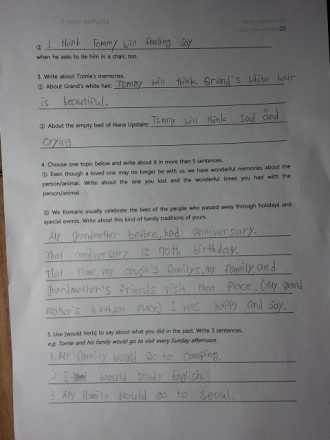 Tomie dePaola
22
② I think Tommy will feeling joy
when he asks to tie him in a chair, too.
3. Write about Tomie's memories.
① About Grand's white hair: Tommy will think Grand's white hair
is beautiful.
② About the empty bed of Nana Upstairs: Tommy will think sad and
crying.
4. Choose one topic below and write about it in more than 5 sentences.
① Even though a loved one may no longer be with us, we have wonderful memories about the
person/animal. Write about the one you lost and the wonderful times you had with the
person/animal.
② We Koreans usually celebrate the lives of the people who passed away through holidays and
special events. Write about this kind of family traditions of yours.
My grandmother before, had anniversary.
That anniversary is 70th birthday.
That time, my couple's familys, my family, and
grandmother's friends visit that place. (My grand
mother's birthday place) I was happy and joy.
5. Use [would Verb] to say about what you did in the past. Write 3 sentences.
e.g. Tomie and his family would go to visit every Sunday afternoon.
1. My family would go to camping.
2. I would study English.
3. My family would go to seoul.